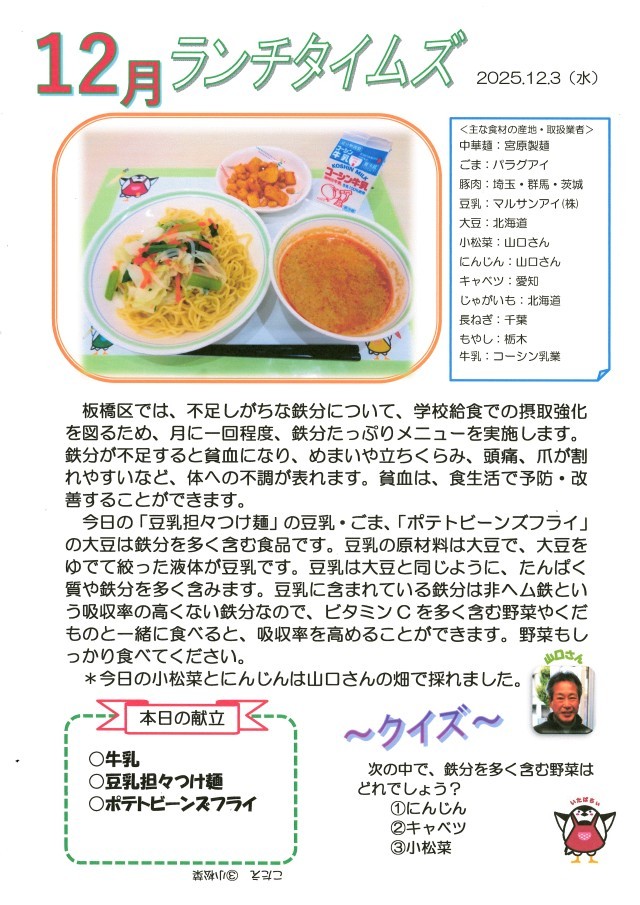 12月 ランチタイムズ 2025.12.3（水）
＜主な食材の産地・取扱業者＞
中華麺：宮原製麺
ごま：パラグアイ
豚肉：埼玉・群馬・茨城
豆乳：マルサンアイ(株)
大豆：北海道
小松菜：山口さん
にんじん：山口さん
キャベツ：愛知
じゃがいも：北海道
長ねぎ：千葉
もやし：栃木
牛乳：コーシン乳業
牛乳
KOSHIN MILK
コーシン牛乳
板橋区では、不足しがちな鉄分について、学校給食での摂取強化
を図るため、月に一回程度、鉄分たっぷりメニューを実施します。
鉄分が不足すると貧血になり、めまいや立ちくらみ、頭痛、爪が割
れやすいなど、体への不調が表れます。貧血は、食生活で予防・改
善することができます。
今日の「豆乳担々つけ麺」の豆乳・ごま、「ポテトビーンズフライ」
の大豆は鉄分を多く含む食品です。豆乳の原材料は大豆で、大豆を
ゆでて絞った液体が豆乳です。豆乳は大豆と同じように、たんぱく
質や鉄分を多く含みます。豆乳に含まれている鉄分は非ヘム鉄とい
う吸収率の高くない鉄分なので、ビタミンCを多く含む野菜やくだ
ものと一緒に食べると、吸収率を高めることができます。野菜もし
っかり食べてください。
＊今日の小松菜とにんじんは山口さんの畑で採れました。
山口さん
本日の献立
○牛乳
○豆乳担々つけ麺
○ポテトビーンズフライ
～クイズ～
次の中で、鉄分を多く含む野菜は
どれでしょう？
①にんじん
②キャベツ
③小松菜
いたばるぃ
こたえ ③小松菜